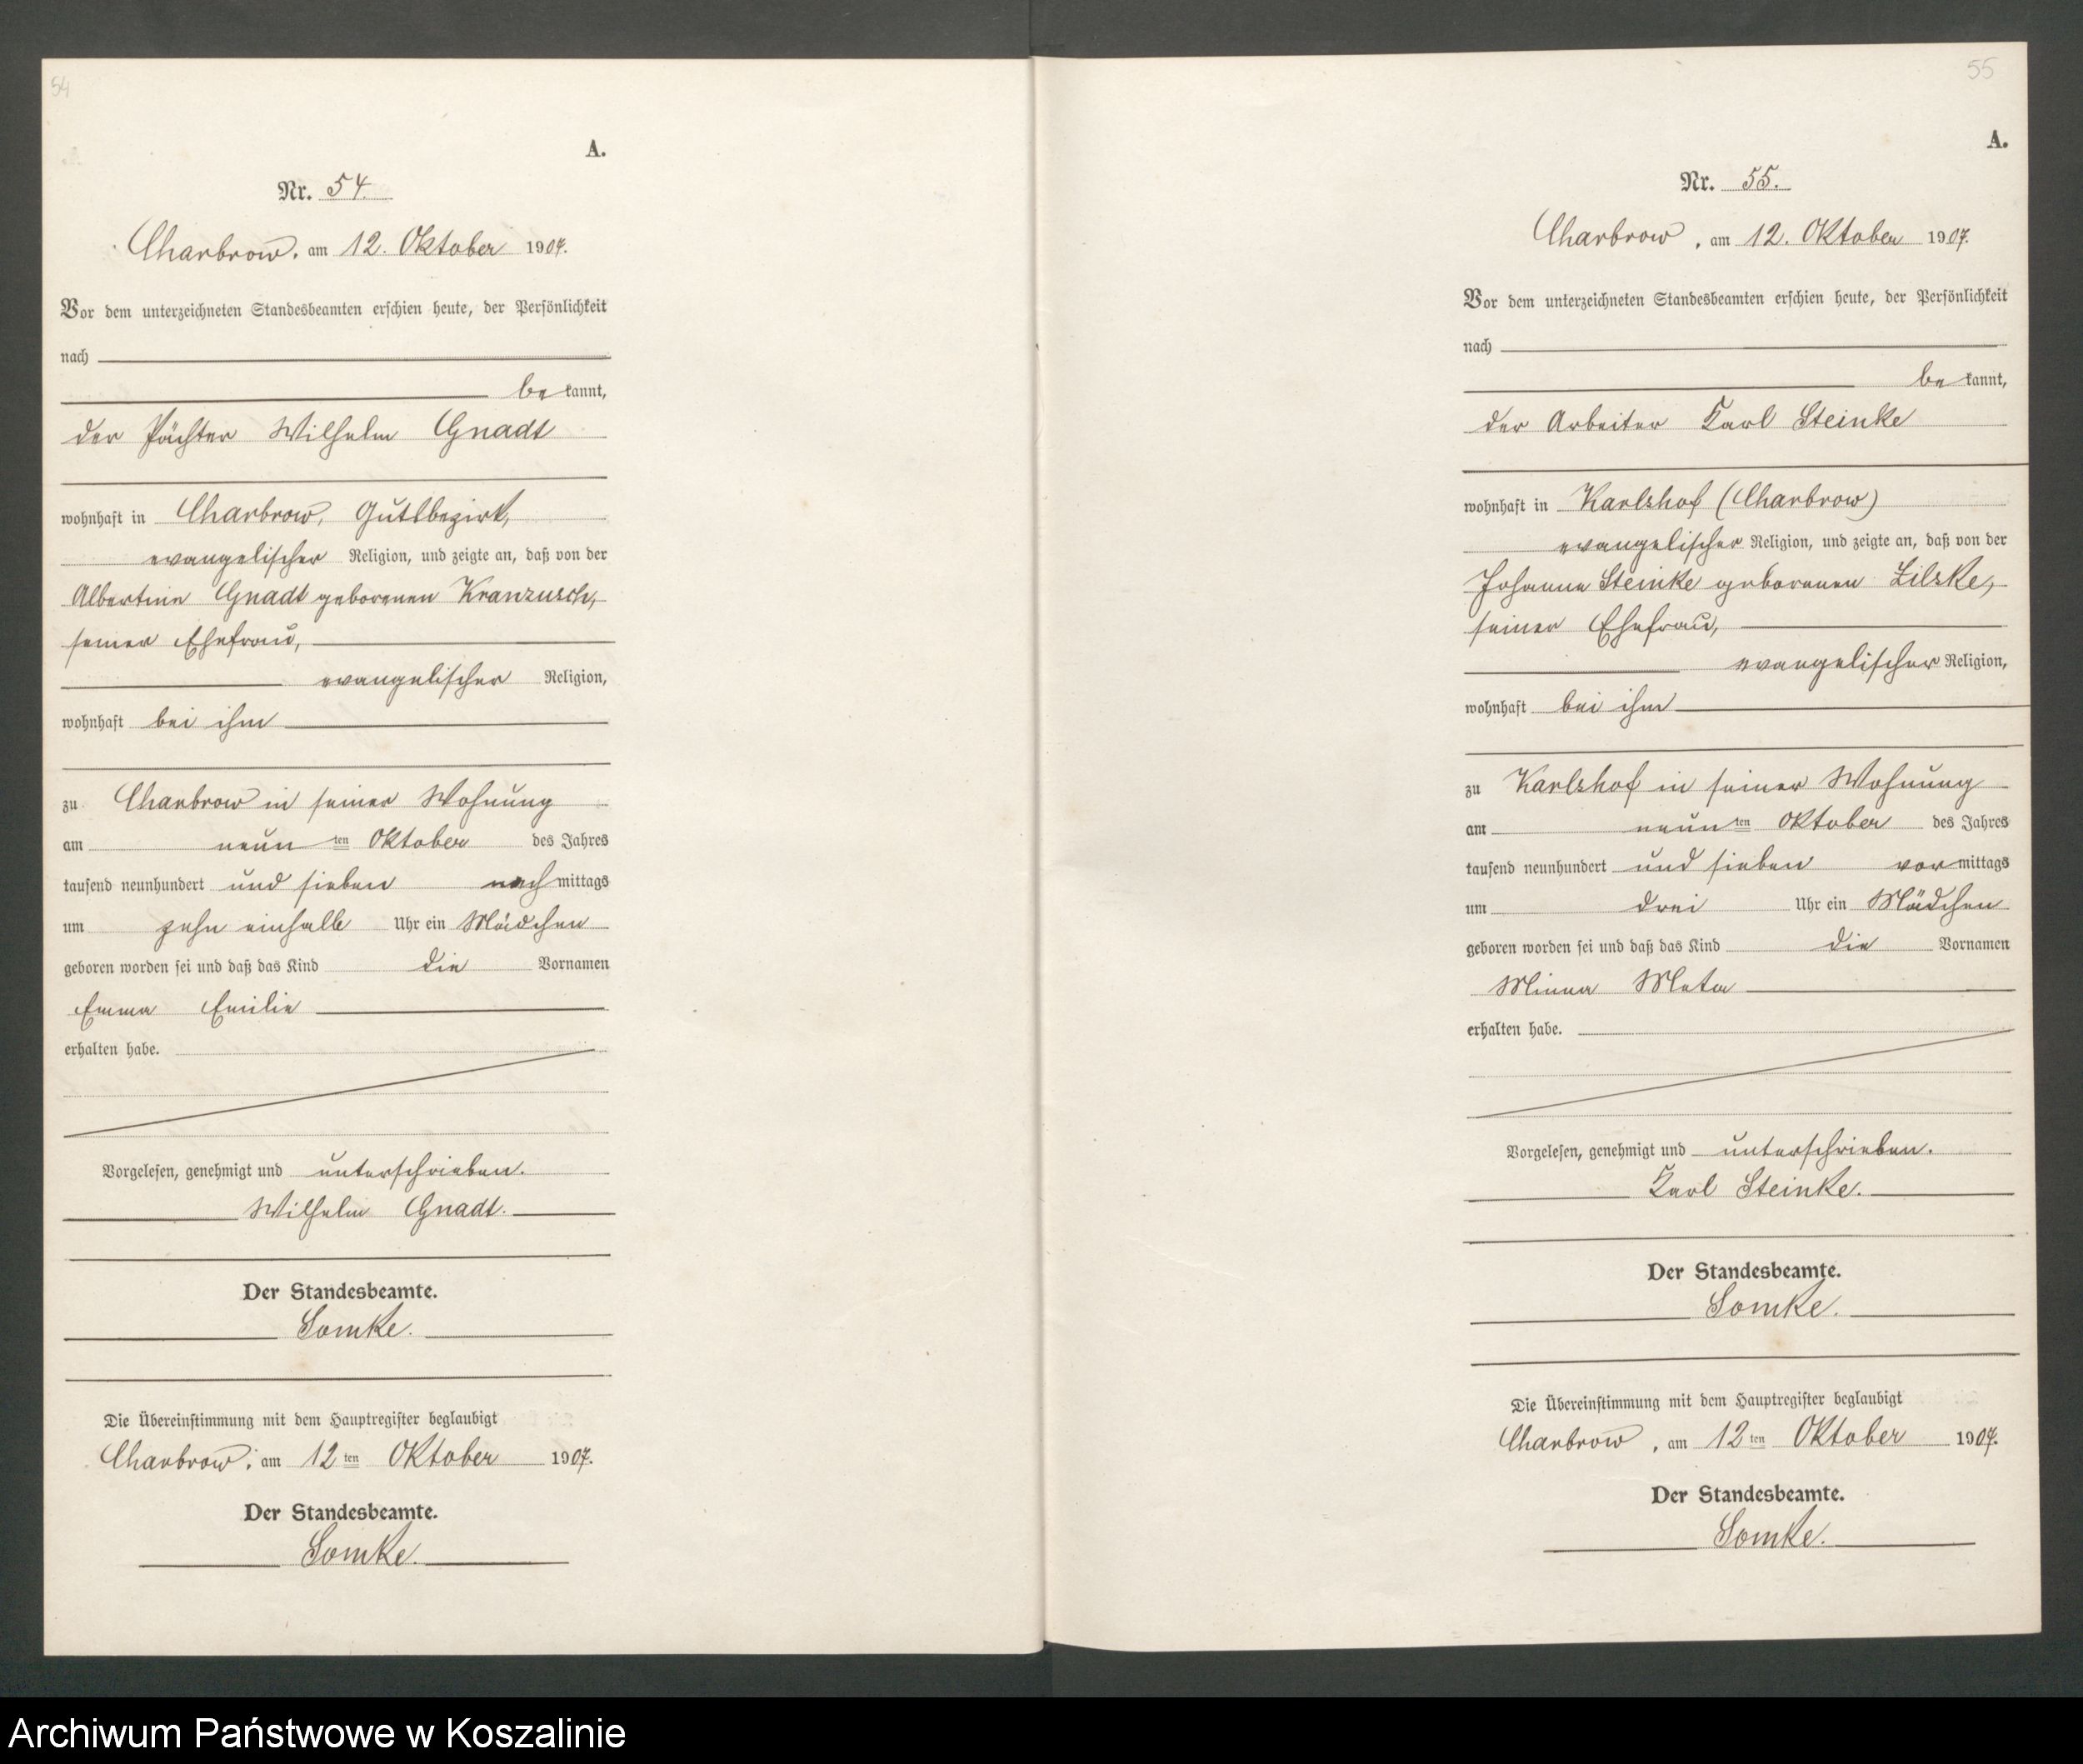 54
A.
Nr. 54.
Charbrow, am 12. Oktober 1907.
Vor dem unterzeichneten Standesbeamten erschien heute, der Persönlichkeit
nach
be kannt,
der Pächter Wilhelm Gnadt
wohnhaft in Charbrow, Gutsbezirk,
evangelischer Religion, und zeigte an, daß von der
Albertine Gnadt geborenen Kranzusch,
seiner Ehefrau,
evangelischer Religion,
wohnhaft bei ihm
zu Charbrow in seiner Wohnung
am neun ten Oktober des Jahres
tausend neunhundert und sieben nach mittags
um zehn einhalb Uhr ein Mädchen
geboren worden sei und daß das Kind die Vornamen
Emma Emilie
erhalten habe.
Vorgelesen, genehmigt und unterschrieben.
Wilhelm Gnadt.
Der Standesbeamte.
Somke.
Die Übereinstimmung mit dem Hauptregister beglaubigt
Charbrow, am 12 ten Oktober 1907.
Der Standesbeamte.
Somke.
55
A.
Nr. 55.
Charbrow, am 12. Oktober 1907.
Vor dem unterzeichneten Standesbeamten erschien heute, der Persönlichkeit
nach
be kannt,
der Arbeiter Karl Steinke
wohnhaft in Karlshof (Charbrow)
evangelischer Religion, und zeigte an, daß von der
Johanne Steinke geborenen Zilske,
seiner Ehefrau,
evangelischer Religion,
wohnhaft bei ihm
zu Karlshof in seiner Wohnung
am neun ten Oktober des Jahres
tausend neunhundert und sieben vor mittags
um drei Uhr ein Mädchen
geboren worden sei und daß das Kind die Vornamen
Minna Meta
erhalten habe.
Vorgelesen, genehmigt und unterschrieben.
Karl Steinke.
Der Standesbeamte.
Somke.
Die Übereinstimmung mit dem Hauptregister beglaubigt
Charbrow, am 12 ten Oktober 1907.
Der Standesbeamte.
Somke.
Archiwum Państwowe w Koszalinie